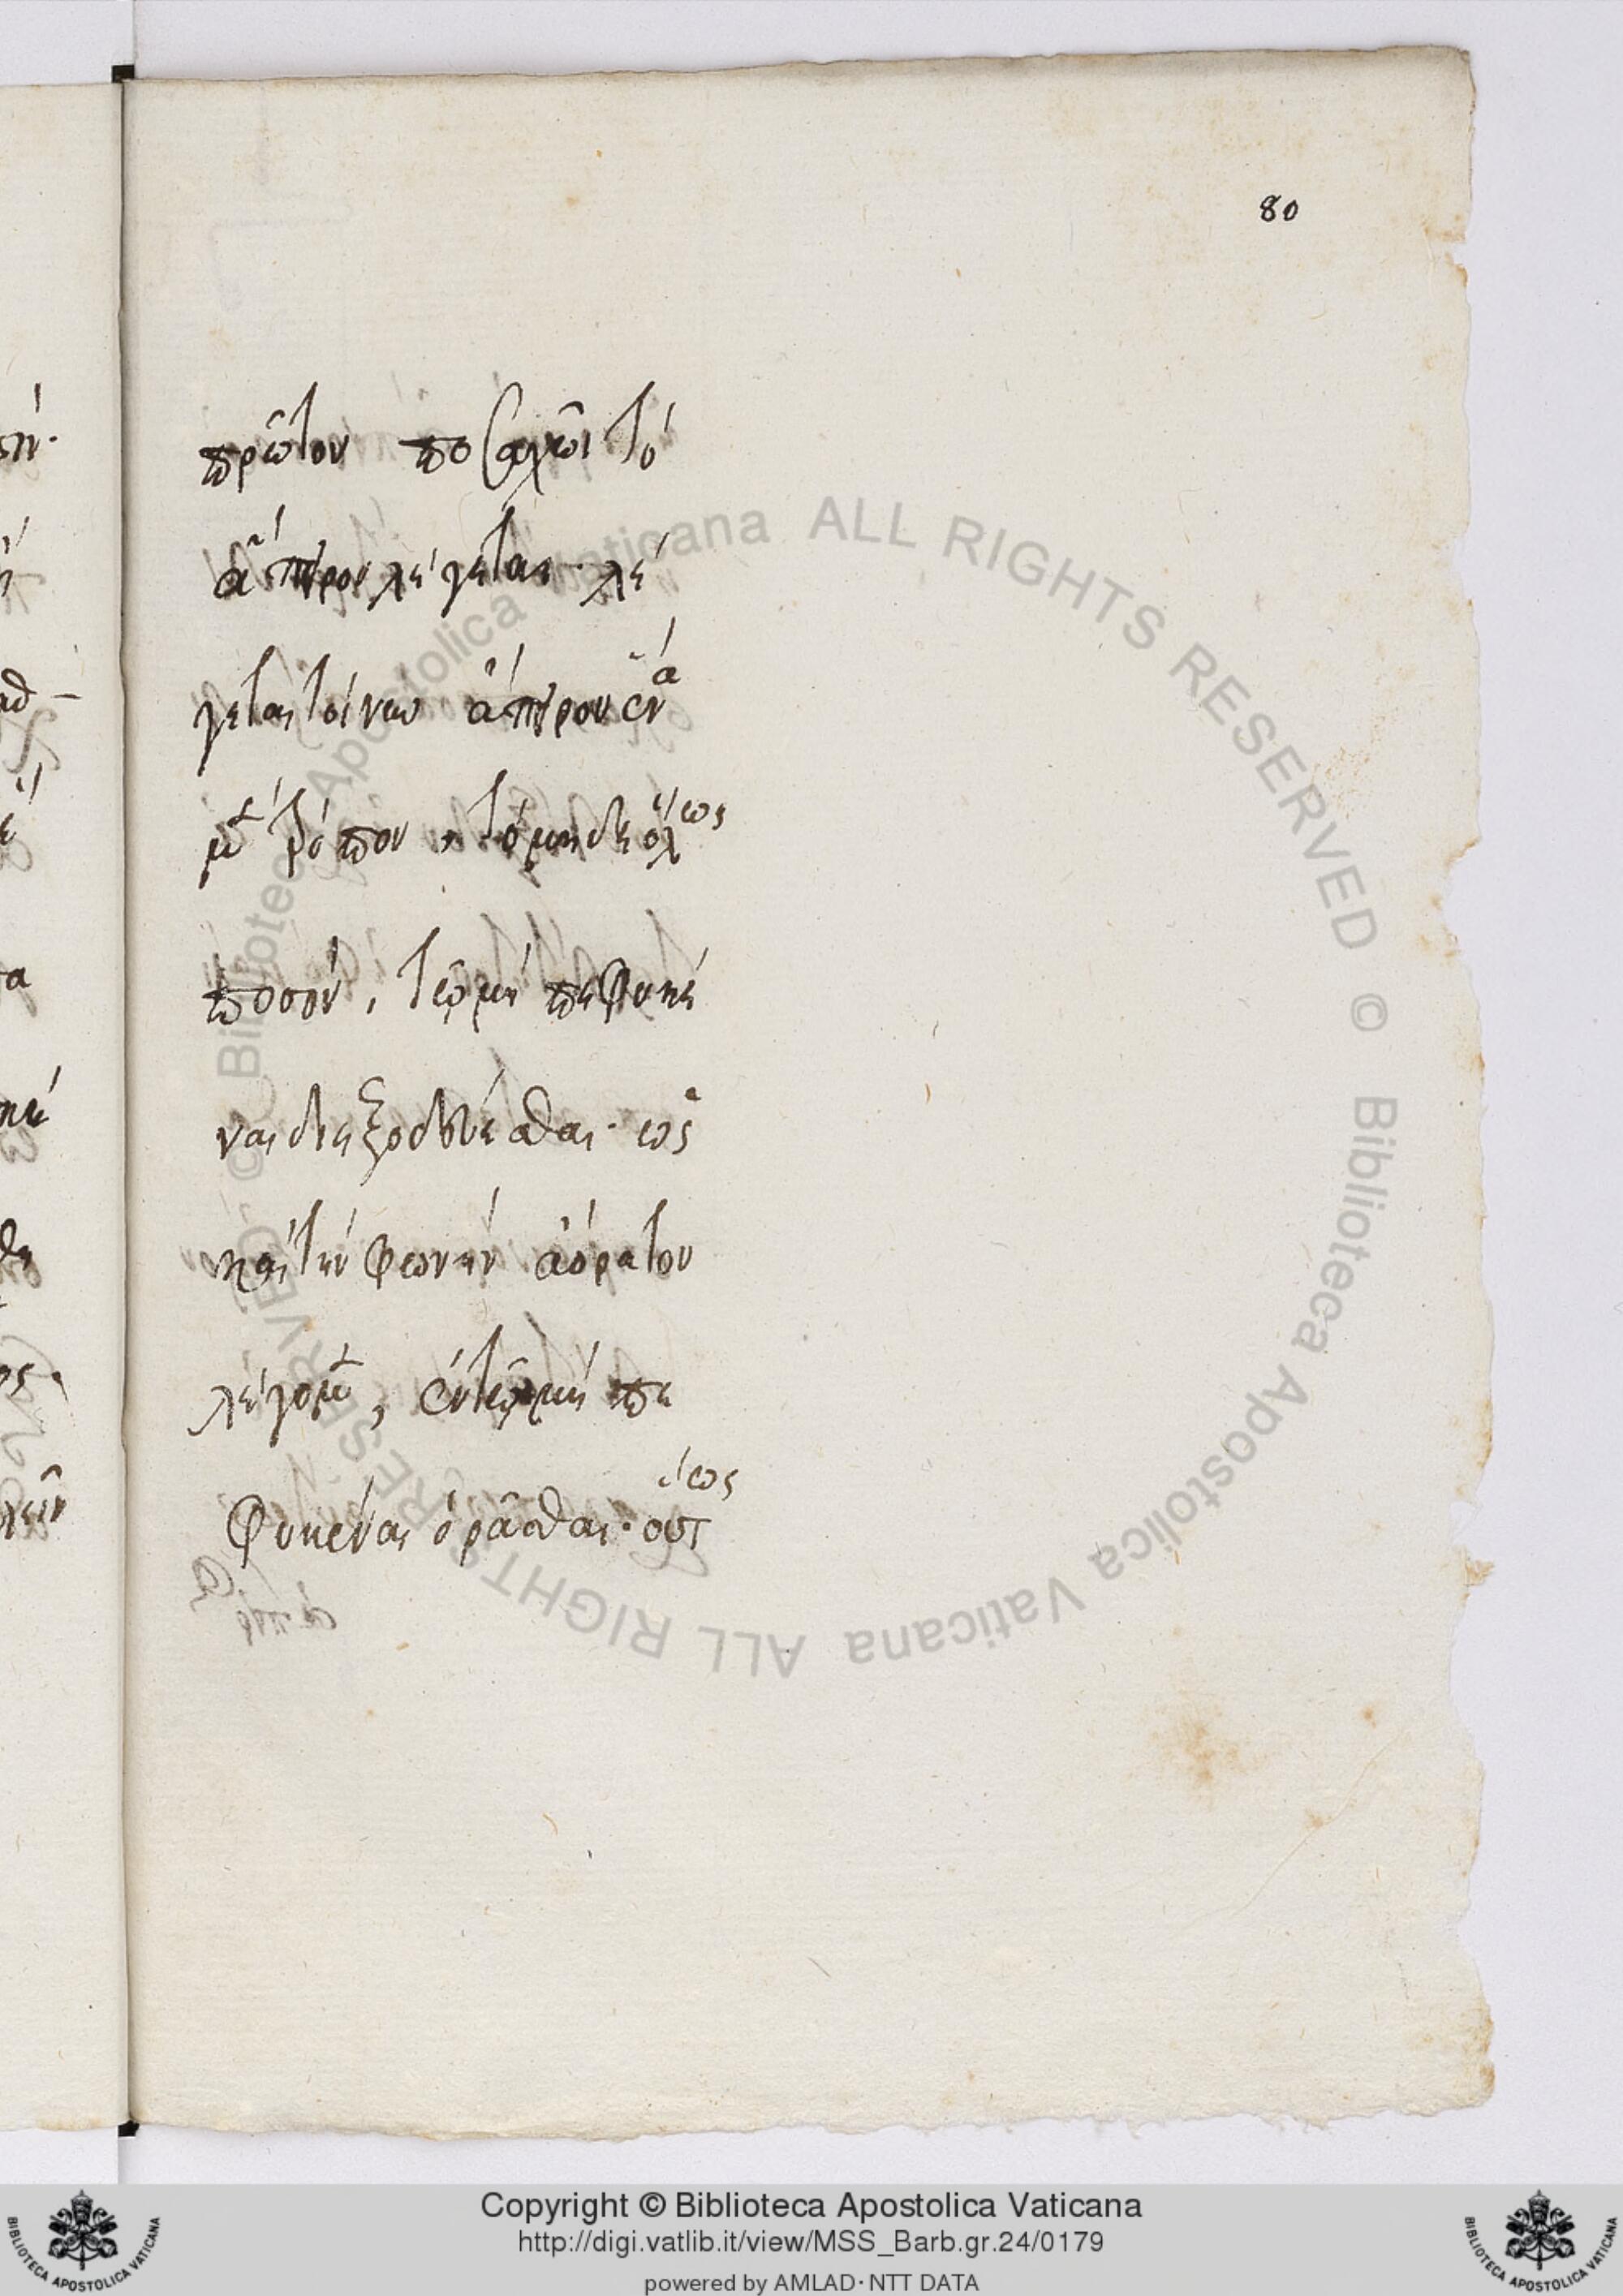 80
πρῶτον ποσαχῶς τὸ
ἄπειρον λέγεται· λέ
γεται τοίνυν ἄπειρον ἕνα
μὲν τρόπον, τὸ μηδὲ ὅλως
ποσόν, τῷ μὴ πεφυκέ
ναι διεξοδεύεσθαι· ὡς
καὶ τὴν φωνὴν ἀόρατον
λέγομεν, ἐν τῷ μὴ πε
φυκέναι ὁρᾶσθαι· οὕτως
Copyright © Biblioteca Apostolica Vaticana
http://digi.vatlib.it/view/MSS_Barb.gr.24/0179
powered by AMLAD·NTT DATA
BIBLIOTECA APOSTOLICA VATICANA
BIBLIOTECA APOSTOLICA VATICANA
© Biblioteca Apostolica Vaticana ALL RIGHTS RESERVED © Biblioteca Apostolica Vaticana ALL RIGHTS RESERVED